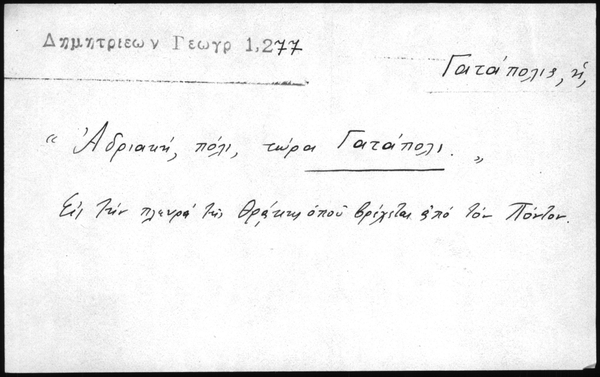 Δημητριεων Γεωγρ 1,277
Γατάπολις, ἡ,
“ Ἀδριακή, πόλι, τώρα Γατάπολι. „
Εἰς τὴν πλευρὰ τῆς Θράκης ὁποῦ βρέχεται ἀπό τόν Πόντον.